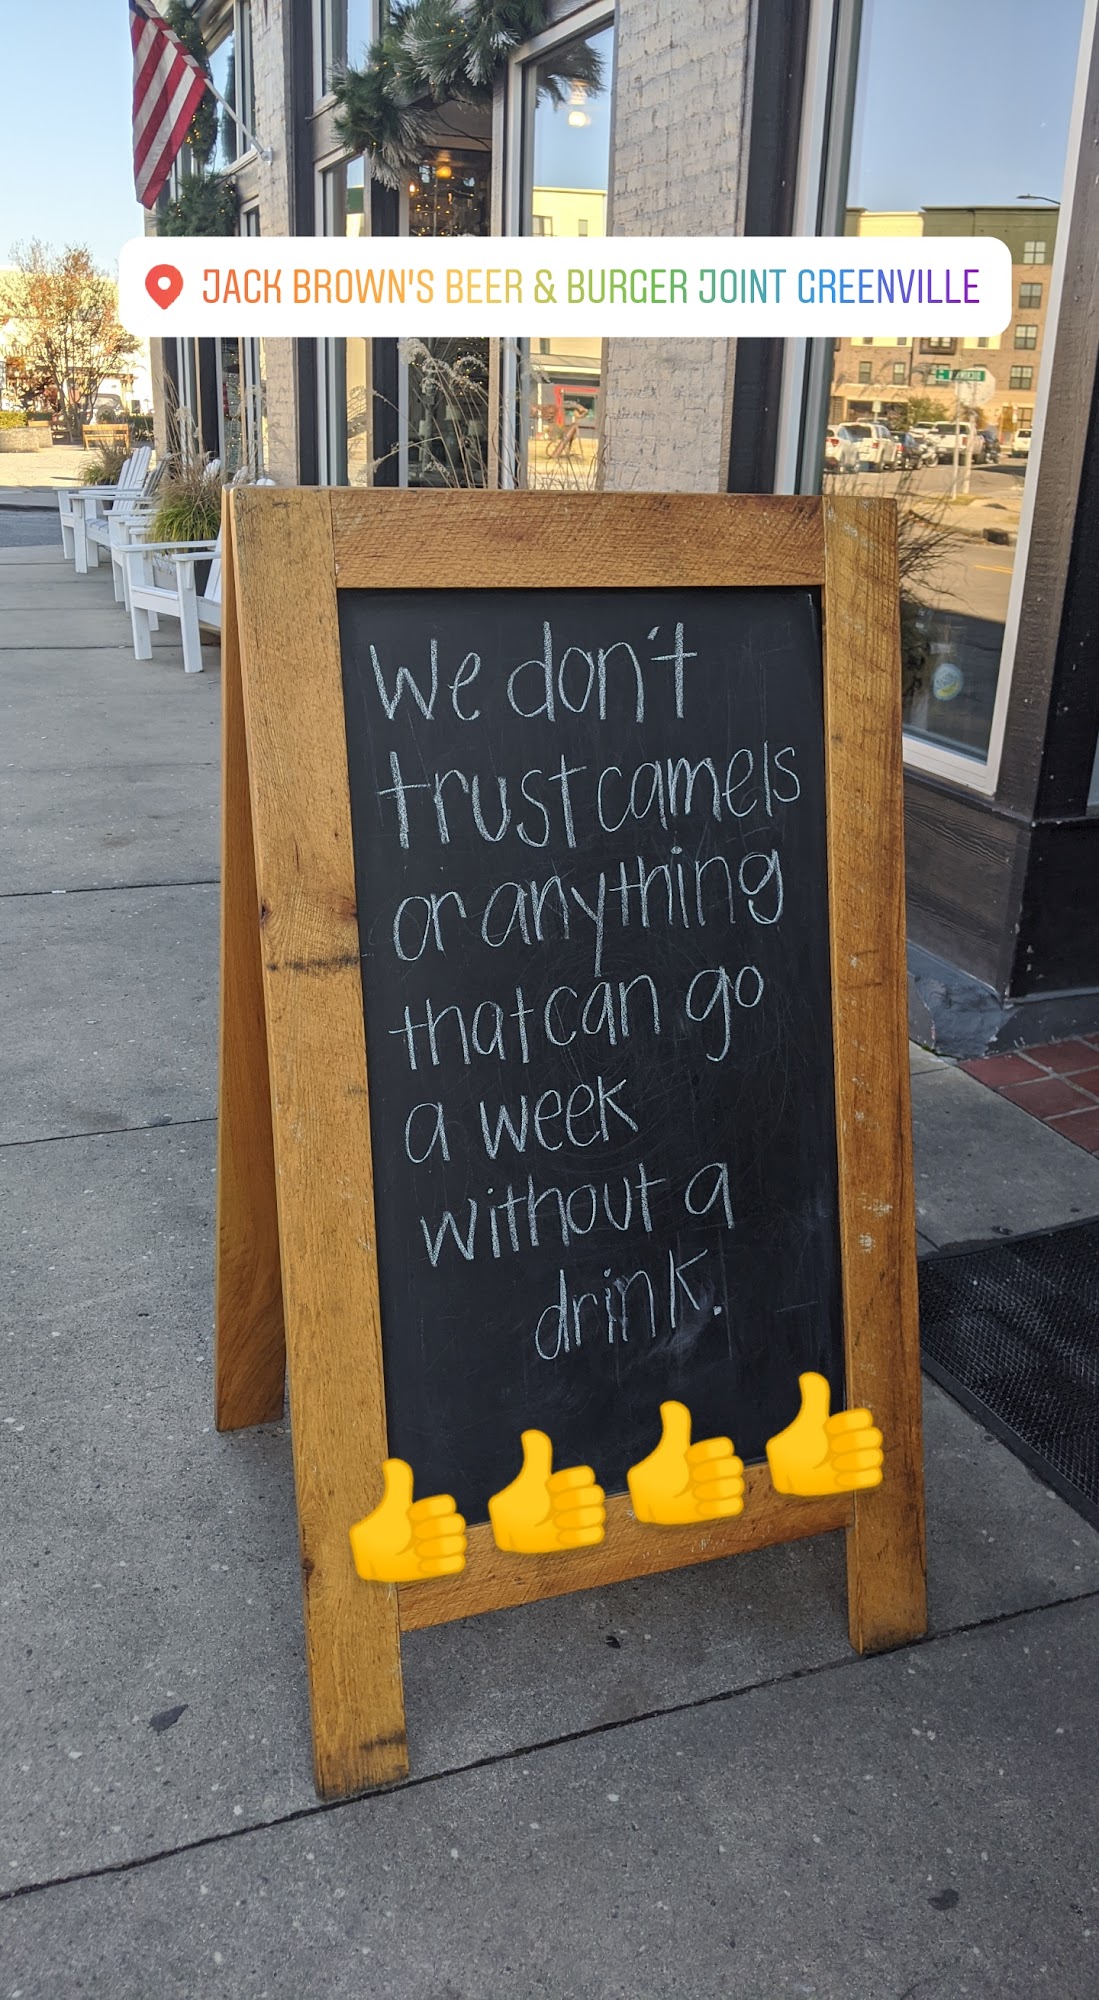 JACK BROWN'S BEER & BURGER JOINT GREENVILLE
We don't
trust camels
or anything
that can go
a week
without a
drink.